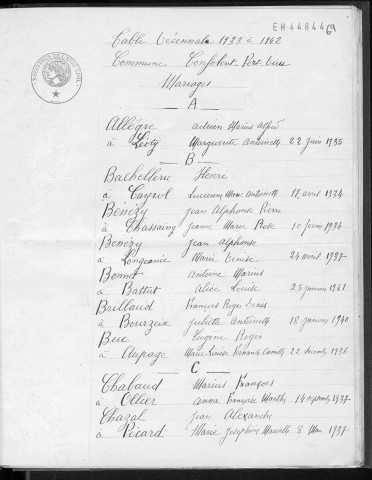 EH448446
Table Décennale 1933 à 1942
Commune Confolent Port Dieu
Mariages
A
Allègre Adrien Marius Alfred
à Léoty Marguerite Antoinette 22 Juin 1935
B
Bachellerie Henri
à Cayrol Lucienne Marie Antoinette 17 avril 1934
Bénézy Jean Alphonse Pierre
à Chassaing Jeanne Marie Rose 10 février 1934
Bénézy Jean Alphonse
à Longeanie Marie Denise 24 avril 1937
Bonnet Antoine Marius
à Battut Alice Louise 25 janvier 1941
Brillaud François Roger Denis
à Bourzeix Juliette Antoinette 18 Janvier 1940
Buc Eugène Roger
à Aupage Marie Louise Fernande Camille 22 décemb 1936
C
Chabaud Marius François
à Ollier Anna Françoise Marthe 14 septemb 1937
Chazal Jean Alexandre
à Picard Marie Joséphine Marcelle 8 Mai 1937